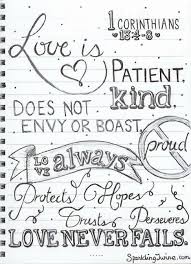 1 CORINTHIANS
13:4-8
Love is
PATIENT.
kind.
DOES NOT
ENVY OR BOAST.
proud
LOVE always
Protects Hopes
Trusts Perseveres
LOVE NEVER FAILS.